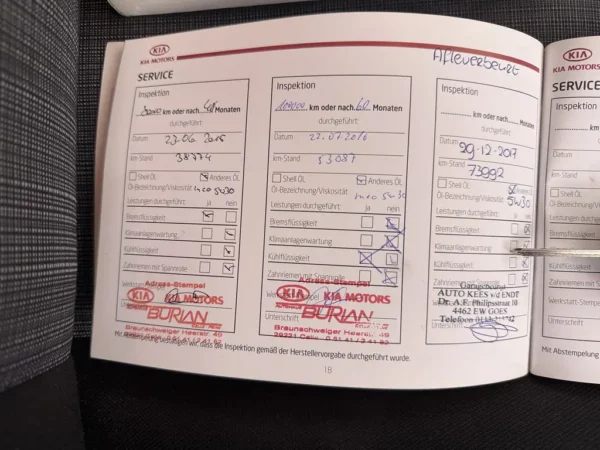 KIA
KIA MOTORS
SERVICE
Inspektion
km oder nach 48 Monaten
durchgeführt
Datum 23.06.2015
km-Stand 38774
Shell ÖL Anderes ÖL
Öl-Bezeichnung/Viskosität 5w30
Leistungen durchgeführt: ja nein
Bremsflüssigkeit
Klimaanlagenwartung
Kühlflüssigkeit
Zahnriemen mit Spannrolle
Adress-Stempel
KIA KIA MOTORS
BURIAN
Braunschweiger Heerstr. 40
Inspektion
km oder nach 60 Monaten
durchgeführt
Datum 22.07.2016
km-Stand 53087
Shell ÖL Anderes ÖL
Öl-Bezeichnung/Viskosität
5w30
Leistungen durchgeführt: ja nein
Bremsflüssigkeit
Klimaanlagenwartung
Kühlflüssigkeit
Zahnriemen mit Spannrolle
Adress-Stempel
KIA KIA MOTORS
BURIAN
Unterschrift
Braunschweiger Heerstr. 40
29221 Celle
Afleverbeurt
Inspektion
km oder nach Monaten
durchgeführt
Datum 29-12-2017
km-Stand 73992
Shell ÖL Anderes ÖL
Öl-Bezeichnung/Viskosität 5W30
Leistungen durchgeführt: ja nein
Bremsflüssigkeit
Klimaanlagenwartung
Kühlflüssigkeit
Zahnriemen mit Spannrolle
Garagebedrijf
AUTO KEES v/d ENDT
Dr. A.F. Philipsstraat 10
4462 EW GOES
Telefoon
Unterschrift
Mit Abstempelung bestätigen wir, dass die Inspektion gemäß der Herstellervorgabe durchgeführt wurde.
18
KIA
KIA MOTORS
SERVICE
Inspektion
Datum
km-Stand
Shell
Öl-Bezeichnung
Leistungen
Bremsflüssig
Klimaanlagen
Kühlflüssigke
Zahnriemen
Werkstatt-Stempel
Unterschrift
Mit Abstempelung